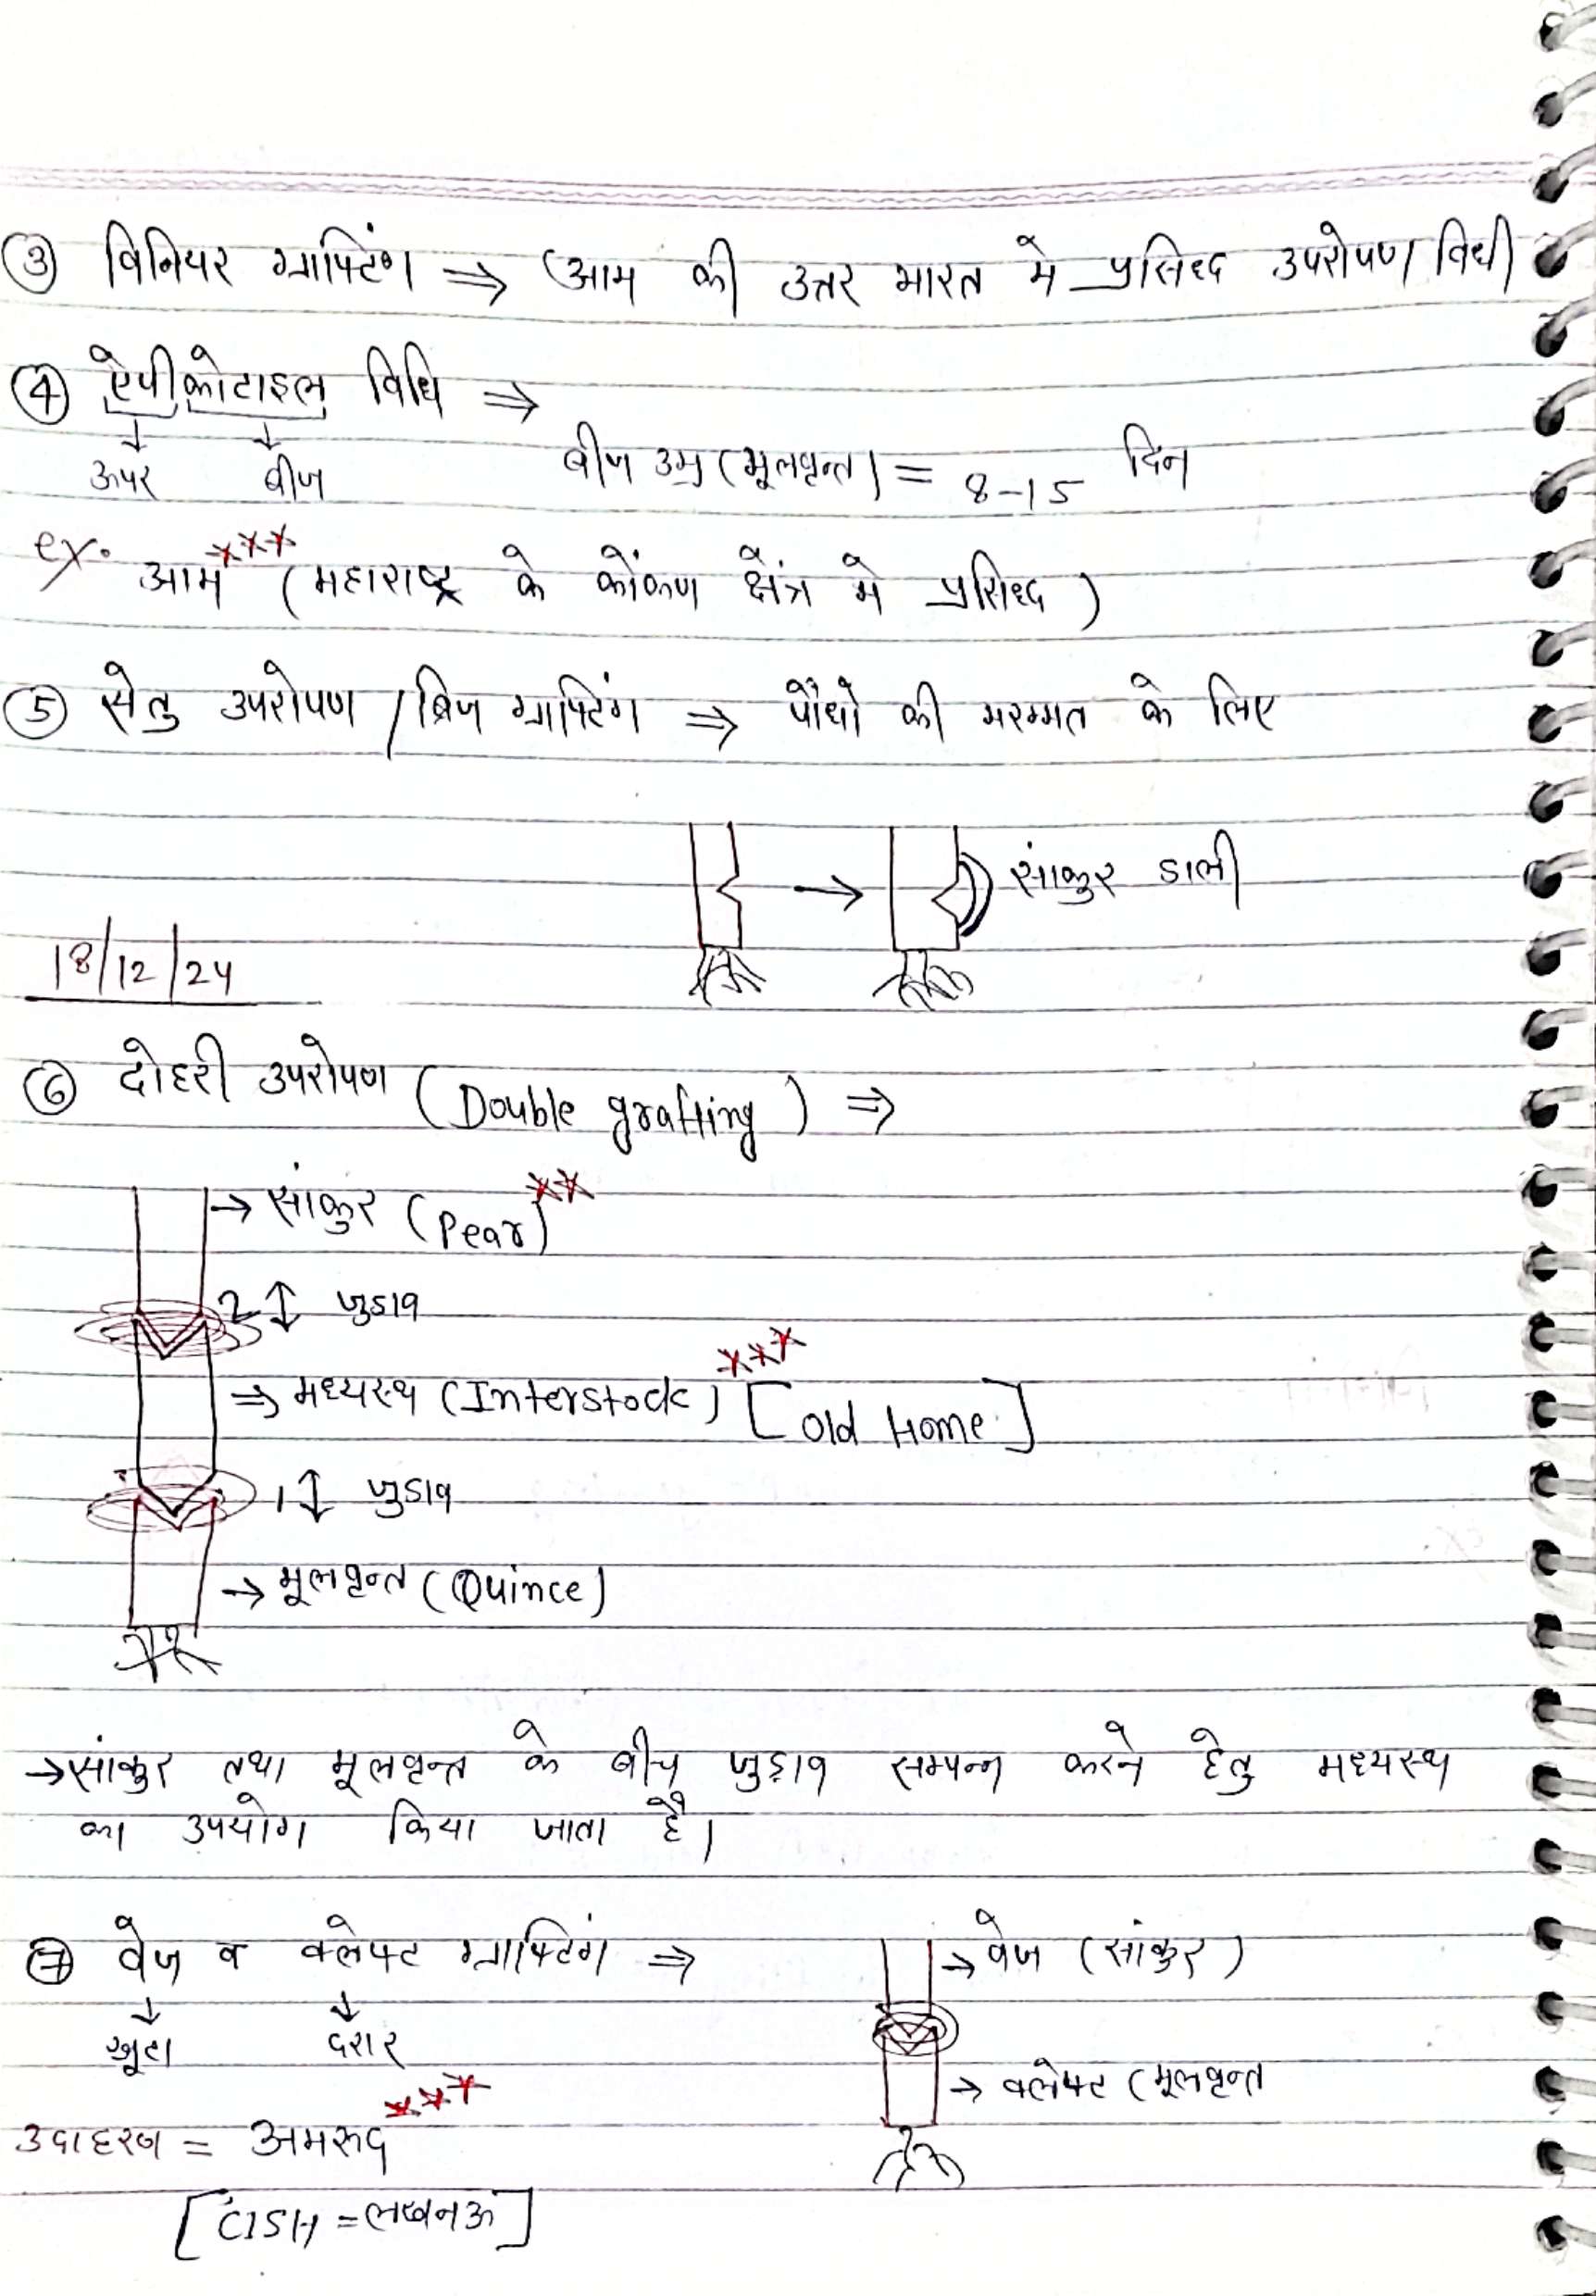 ③ विनियर ग्राफ्टिंग ⇒ (आम की उत्तर भारत मे प्रसिध्द उपरोपण विधी
④ ऐपीकोटाइल विधि ⇒
↓ ↓
ऊपर बीज
बीज उम्र (मूलवृन्त) = 8-15 दिन
ex. आम*** (महाराष्ट्र के कोंकण क्षेंत्र मे प्रसिध्द)
⑤ सेतु उपरोपण / ब्रिज ग्राफ्टिंग ⇒ पौधों की मरम्मत के लिए
→ सांकुर डाली
18/12/24
⑥ दोहरी उपरोपण (Double grafting) ⇒
→ सांकुर (Pear)**
2 ↕ जुडाव
⇒ मध्यस्थ (Interstock)*** [Old Home]
1 ↕ जुडाव
→ मूलवृन्त (Quince)
→ सांकुर तथा मूलवृन्त के बीच जुड़ाव सम्पन्न करने हेतु मध्यस्थ
का उपयोग किया जाता है।
⑦ वेज व क्लेफ्ट ग्राफ्टिंग ⇒
↓ ↓
खूटा दरार
→ वेज (सांकुर)
→ क्लेफ्ट (मूलवृन्त
उदाहरण = अमरूद***
[CISH = लखनऊ]